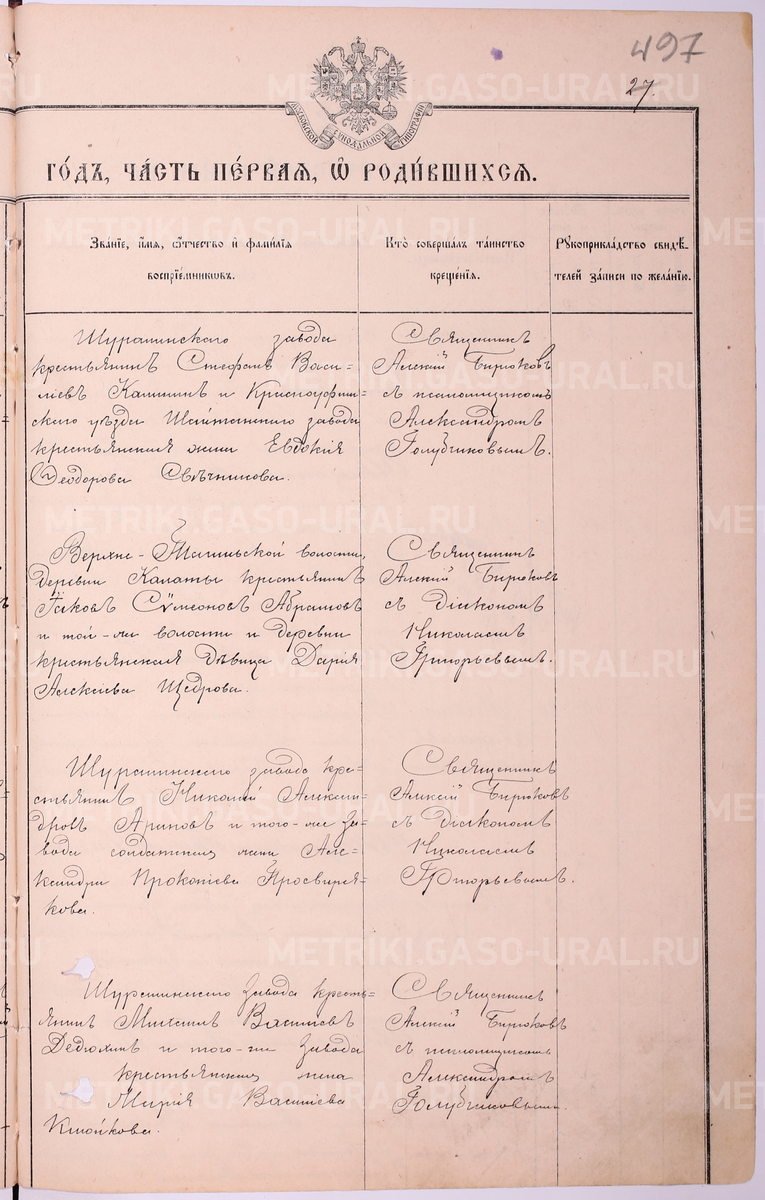 497
27.
МОСКОВСКОЙ СѴНОДАЛЬНОЙ ТИПОГРАФІИ
ГО́ДЪ, ЧА́СТЬ ПЕ́РВАЯ, Ѽ РОДИ́ВШИХСЯ.
Зва́нїе, и́мя, ѻ҆́тчество и҆ фами́лїя
воспрїе́мниковъ.
Кто̀ соверша́лъ та́инство
креще́нїя.
Рꙋкоприкла́дство свидѣ́-
телей за́писи по жела́нїю.
Шуралинскаго завода
крестьянинъ Стефанъ Васи-
ліевъ Калининъ и Красноуфим-
скаго уѣзда Шайтанскаго завода
крестьянская жена Евдокія
Ѳеодорова Свѣчникова.
Священникъ
Алексій Бирюковъ
съ псаломщикомъ
Александромъ
Голубчиковымъ.
Верхне-Тагильской волости,
деревни Калаты крестьянинъ
Іаковъ Сѵмеоновъ Абрамовъ
и той-же волости и деревни
крестьянская дѣвица Дарія
Алексіева Щедрова.
Священникъ
Алексій Бирюковъ
съ діакономъ
Николаемъ
Григорьевымъ.
Шуралинскаго завода кре-
стьянинъ Николай Алексан-
дровъ Ариповъ и того-же за-
вода солдатская жена Але-
ксандра Прокопіева Просвиря-
кова.
Священникъ
Алексій Бирюковъ
съ діакономъ
Николаемъ
Григорьевымъ.
Шуралинскаго завода кресть-
янинъ Михаилъ Василіевъ
Дедюхинъ и того-же завода
крестьянская жена
Марія Василіева
Клюйкова.
Священникъ
Алексій Бирюковъ
съ псаломщикомъ
Александромъ
Голубчиковымъ.
METRIKI.GASO-URAL.RU